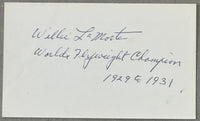 Willie La Morte
Worlds Flyweight Champion
1929 & 1931